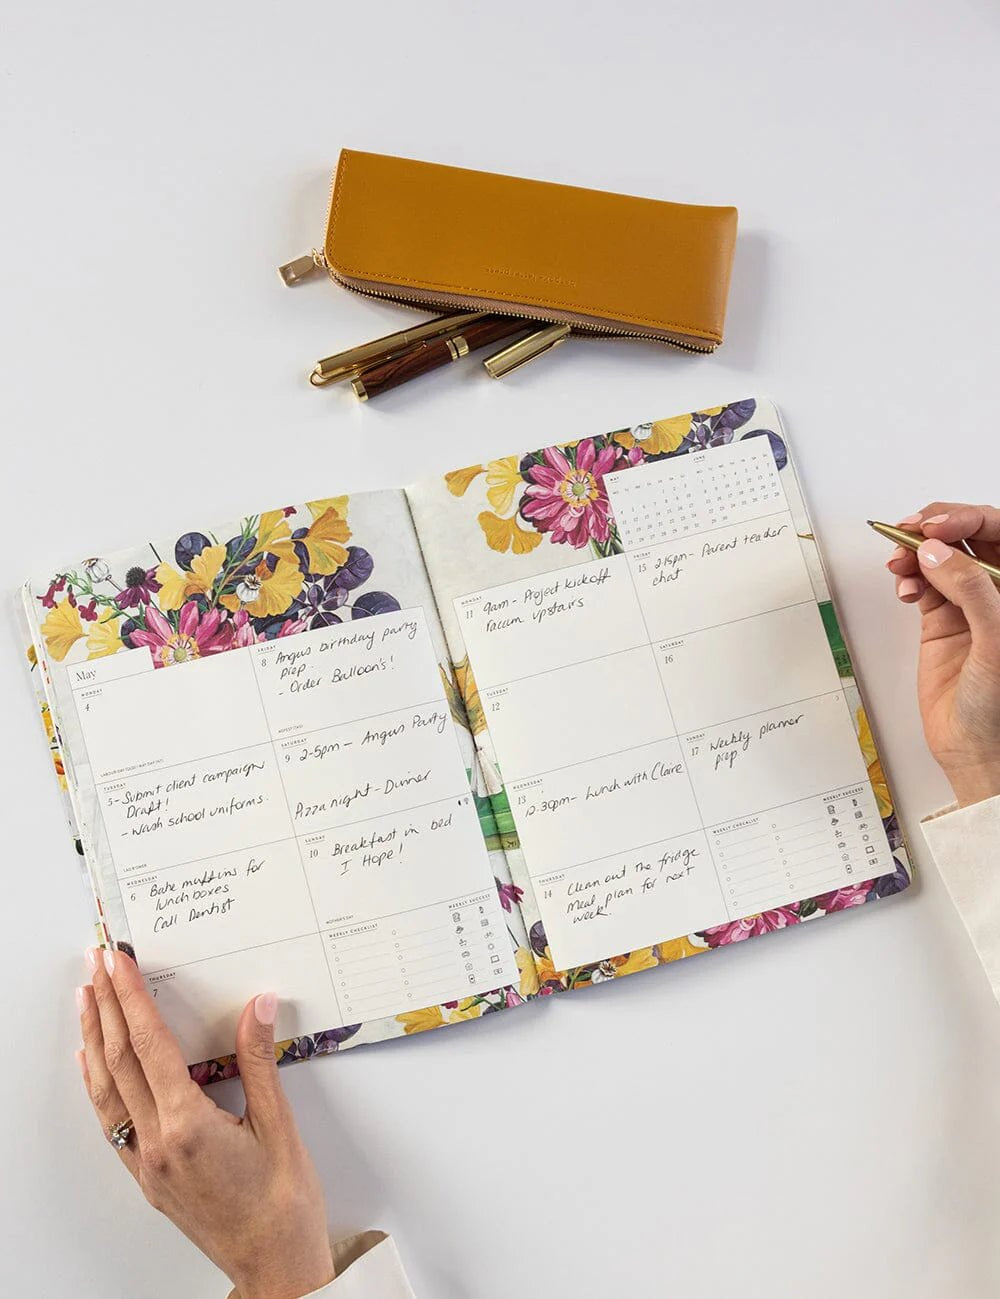 May
MONDAY
4
TUESDAY
5 - Submit client campaign
Draft!
- Wash school uniforms.
WEDNESDAY
6
Bake muffins for
lunch boxes
Call Dentist
THURSDAY
7
FRIDAY
8
Angus birthday party
prep.
- Order Balloon's!
SATURDAY
9
2-5pm - Angus Party
Pizza night - Dinner
SUNDAY
10
Breakfast in bed
I Hope!
MOTHER'S DAY
WEEKLY CHECKLIST
WEEKLY SUCCESS
MAY
JUNE
MONDAY
11
9am - Project Kickoff
raccum upstairs
TUESDAY
12
WEDNESDAY
13
12:30pm - Lunch with Claire
THURSDAY
14
Clean out the fridge
Meal plan for next
week.
FRIDAY
15
2.15pm - Parent teacher
chat
16
SUNDAY
17
Weekly planner
prep.
WEEKLY CHECKLIST
WEEKLY SUCCESS